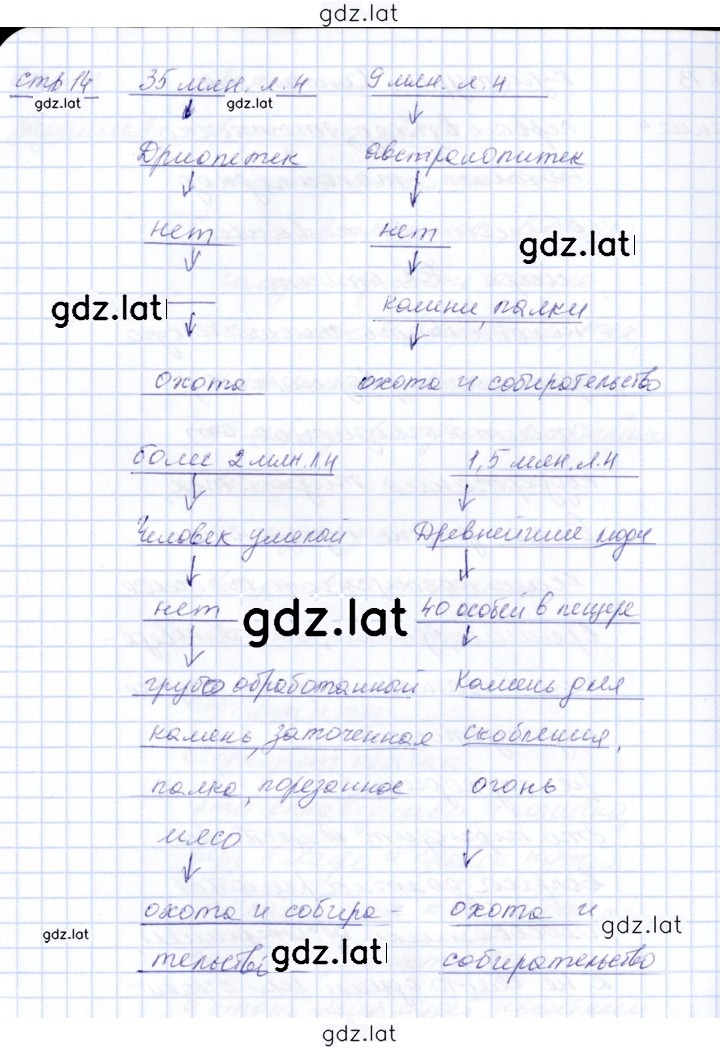 gdz.lat
стр 14 35 млн. л. н 9 млн. л. н
gdz.lat gdz.lat
Дриопетек австралопитек
нет нет
gdz.lat
gdz.lat
камни, палки
охота охота и собирательство
более 2 млн. л н 1,5 млн. л. н
Человек умелый Древнейшие люди
нет 40 особей в пещере
gdz.lat
грубо обработанный Камень для
камень, заточенная скобления,
палка, порезанное огонь
мясо
охота и собира- охота и
gdz.lat gdz.lat
тельство собирательство
gdz.lat
gdz.lat